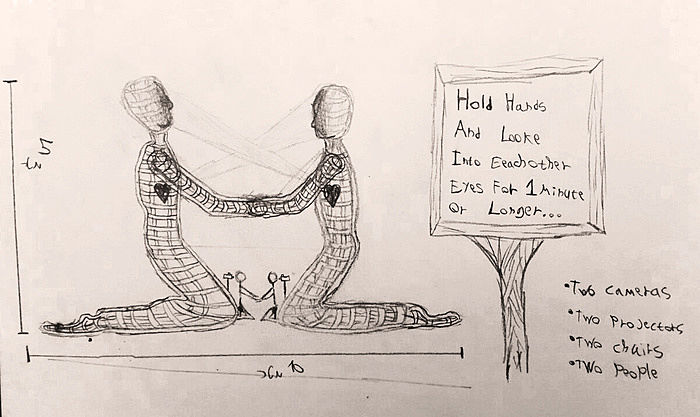 Hold Hands
And Looke
Into Eeachother
Eyes For 1 Minute
Or Longer...
•Two cameras
•Two Projectors
•Two chairs
•Two People